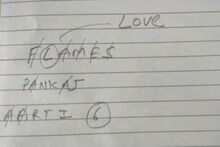 LOVE
FLAMES
PANKAJ
AARTI 6